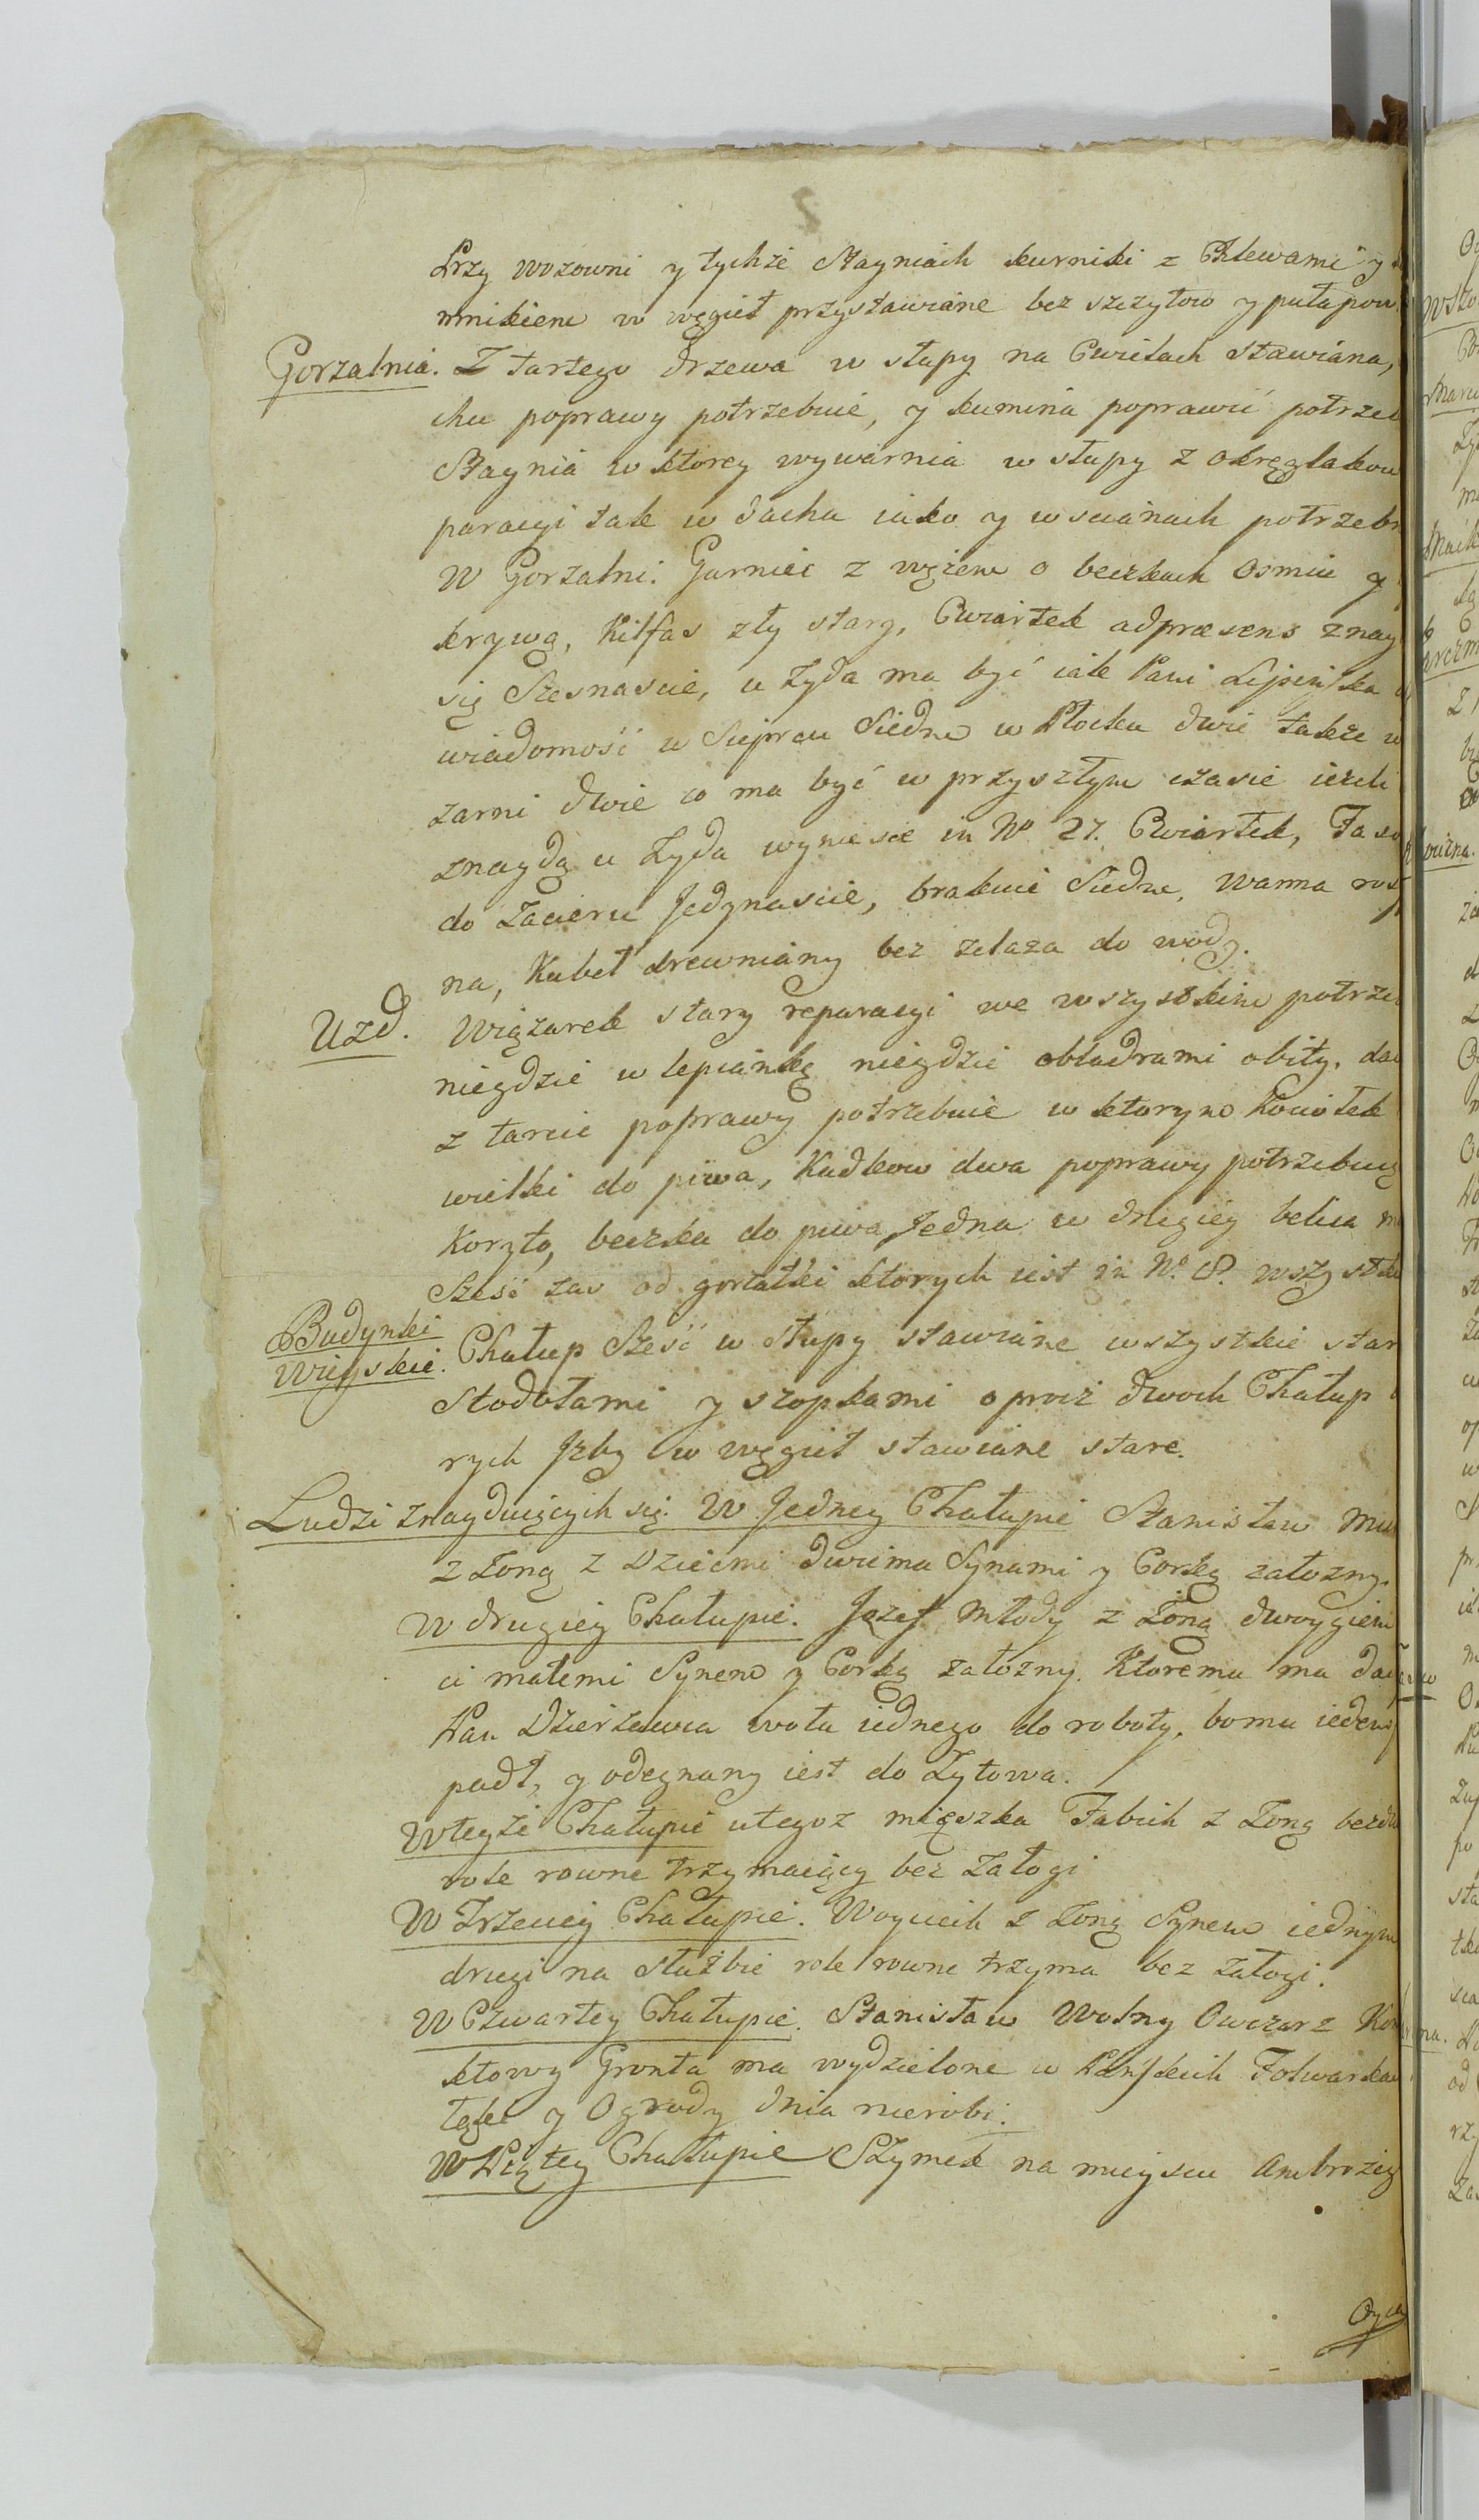 Przy wozowni y tychże Stayniach kurniki z Chlewami y
mnikiem w węgieł przystawiane bez szczytow y pułapow
Gorzalnia. Z tartego drzewa w słupy na Cwielach stawiana,
chu poprawy potrzebuie, y kumina poprawić potrzeb
Staynia w ktorey wywarnia w słupy z okrąglakow
paracyi tak w dachu iako y w scianach potrzebn
W Gorzalni. Garniec z wężem o beczkach osmiu y
krywą, Kilfas zły stary, Cwiartek adpræsens znay
się Szesnascie, u Zyda ma być iak Pani Lipinska
wiadomość w Sieprcu Siedm w Płocku dwie także w
zarni dwie co ma być w przyszłym czasie ieżeli
znaydą u Zyda wyniesie in No 27. Cwiartek, Fa
do Zacieru Jedynascie, brakuie Siedm, Wanna ros
na, Kubeł drewniany bez zelaza do wody.
Uzd. Wiązarek stary reparacyi we wszystkim potrze
niegdzie w lepiankę niegdzie obladrami obity, da
z tarcic poprawy potrzebuie w ktorym Kociołek
wielki do piwa, Kadkow dwa poprawy potrzebuią
Koryto, beczka do piwa Jedna w drugiey belica
Szesć zas od gorzałki ktorych iest in No. 8. wszystk
Budynki
Wieyskie. Chałup Szesć w słupy stawiane wszystkie star
Stodołami y szopkami oprocz dwoch Chałup
rych Jzby w węgieł stawiane stare.
Ludzi znayduiących się. W Jedney Chałupie Stanisław Mu
z Zoną z Dziećmi dwiema Synami y Corką załozny.
W drugiey Chałupie. Jozef Młody z Zoną dwoygiem
ci małemi Synem y Corką załozny. Ktoremu ma da
Pan Dzierzawca wołu iednego do roboty. bo mu ieden
padł, y odegnany iest do Zytowa.
Wteyże Chałupie utegoz mięszka Fabich z Zoną bez
role rowne trzymaiący bez Załogi
W Trzeciey Chałupie. Woyciech z Zoną Synem iednym
drugi na słuzbie role rowne trzyma bez załogi.
W Czwartey Chałupie. Stanisław Wolny Owczarz Kon
ktowy Gronta ma wydzielone w Pańskich Folwarka
łąki y Ogrody dnia nierobi.
W Piątey Chałupie Szymek na mieyscu Ambrozeg